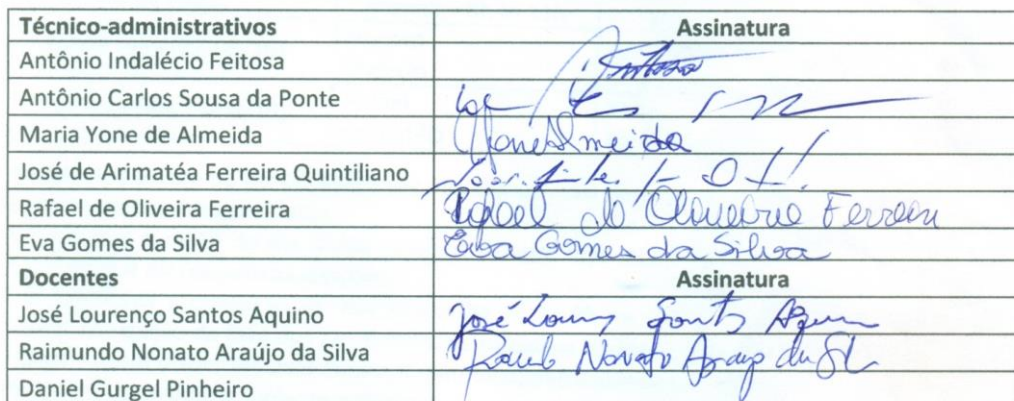 Técnico-administrativos Assinatura
Antônio Indalécio Feitosa Feitosa
Antônio Carlos Sousa da Ponte
Maria Yone de Almeida Yone Almeida
José de Arimatéa Ferreira Quintiliano
Rafael de Oliveira Ferreira Rafael de Oliveira Ferreira
Eva Gomes da Silva Eva Gomes da Silva
Docentes Assinatura
José Lourenço Santos Aquino José
Raimundo Nonato Araújo da Silva Nonato Araujo da
Daniel Gurgel Pinheiro